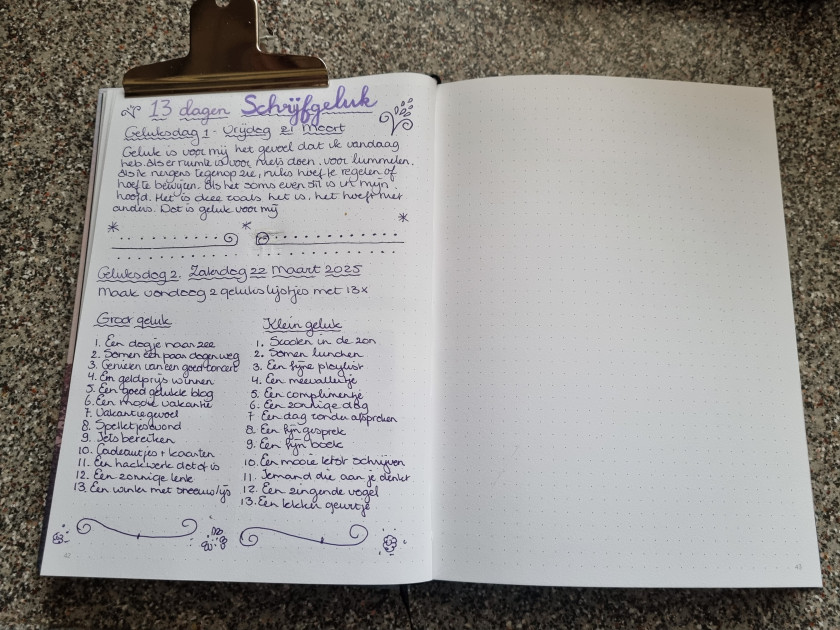 13 dagen Schrijfgeluk
Geluksdag 1 - Vrijdag 21 maart
Geluk is voor mij het gevoel dat ik vandaag
heb. Als er ruimte is voor niets doen. voor lummelen.
Als ik nergens tegenop zie, niks hoef te regelen of
hoef te bewijzen. Als het soms even stil is in mijn
hoofd. Het is okee zoals het is, het hoeft niet
anders. Dat is geluk voor mij
Geluksdag 2. Zaterdag 22 maart 2025
Maak vandaag 2 gelukslijstjes met 13x
Groot geluk
1. Een dagje naar zee
2. Samen een paar dagen weg
3. Genieten van een goed concert
4. Een geldprijs winnen
5. Een goed gelukte blog
6. Een mooie vakantie
7. Vakantiegevoel
8. Spelletjesavond
9. Iets bereiken
10. Cadeautjes + kaarten
11. Een haakwerk dat af is
12. Een zonnige lente
13. Een winter met sneeuw/ijs
Klein geluk
1. Scooten in de zon
2. Samen lunchen
3. Een fijne playlist
4. Een meevallertje
5. Een complimentje
6. Een zonnige dag
7 Een dag zonder afspraken
8. Een fijn gesprek
9. Een fijn boek
10. Een mooie tekst schrijven
11. Iemand die aan je denkt
12. Een zingende vogel
13. Een lekker geurtje
42
43